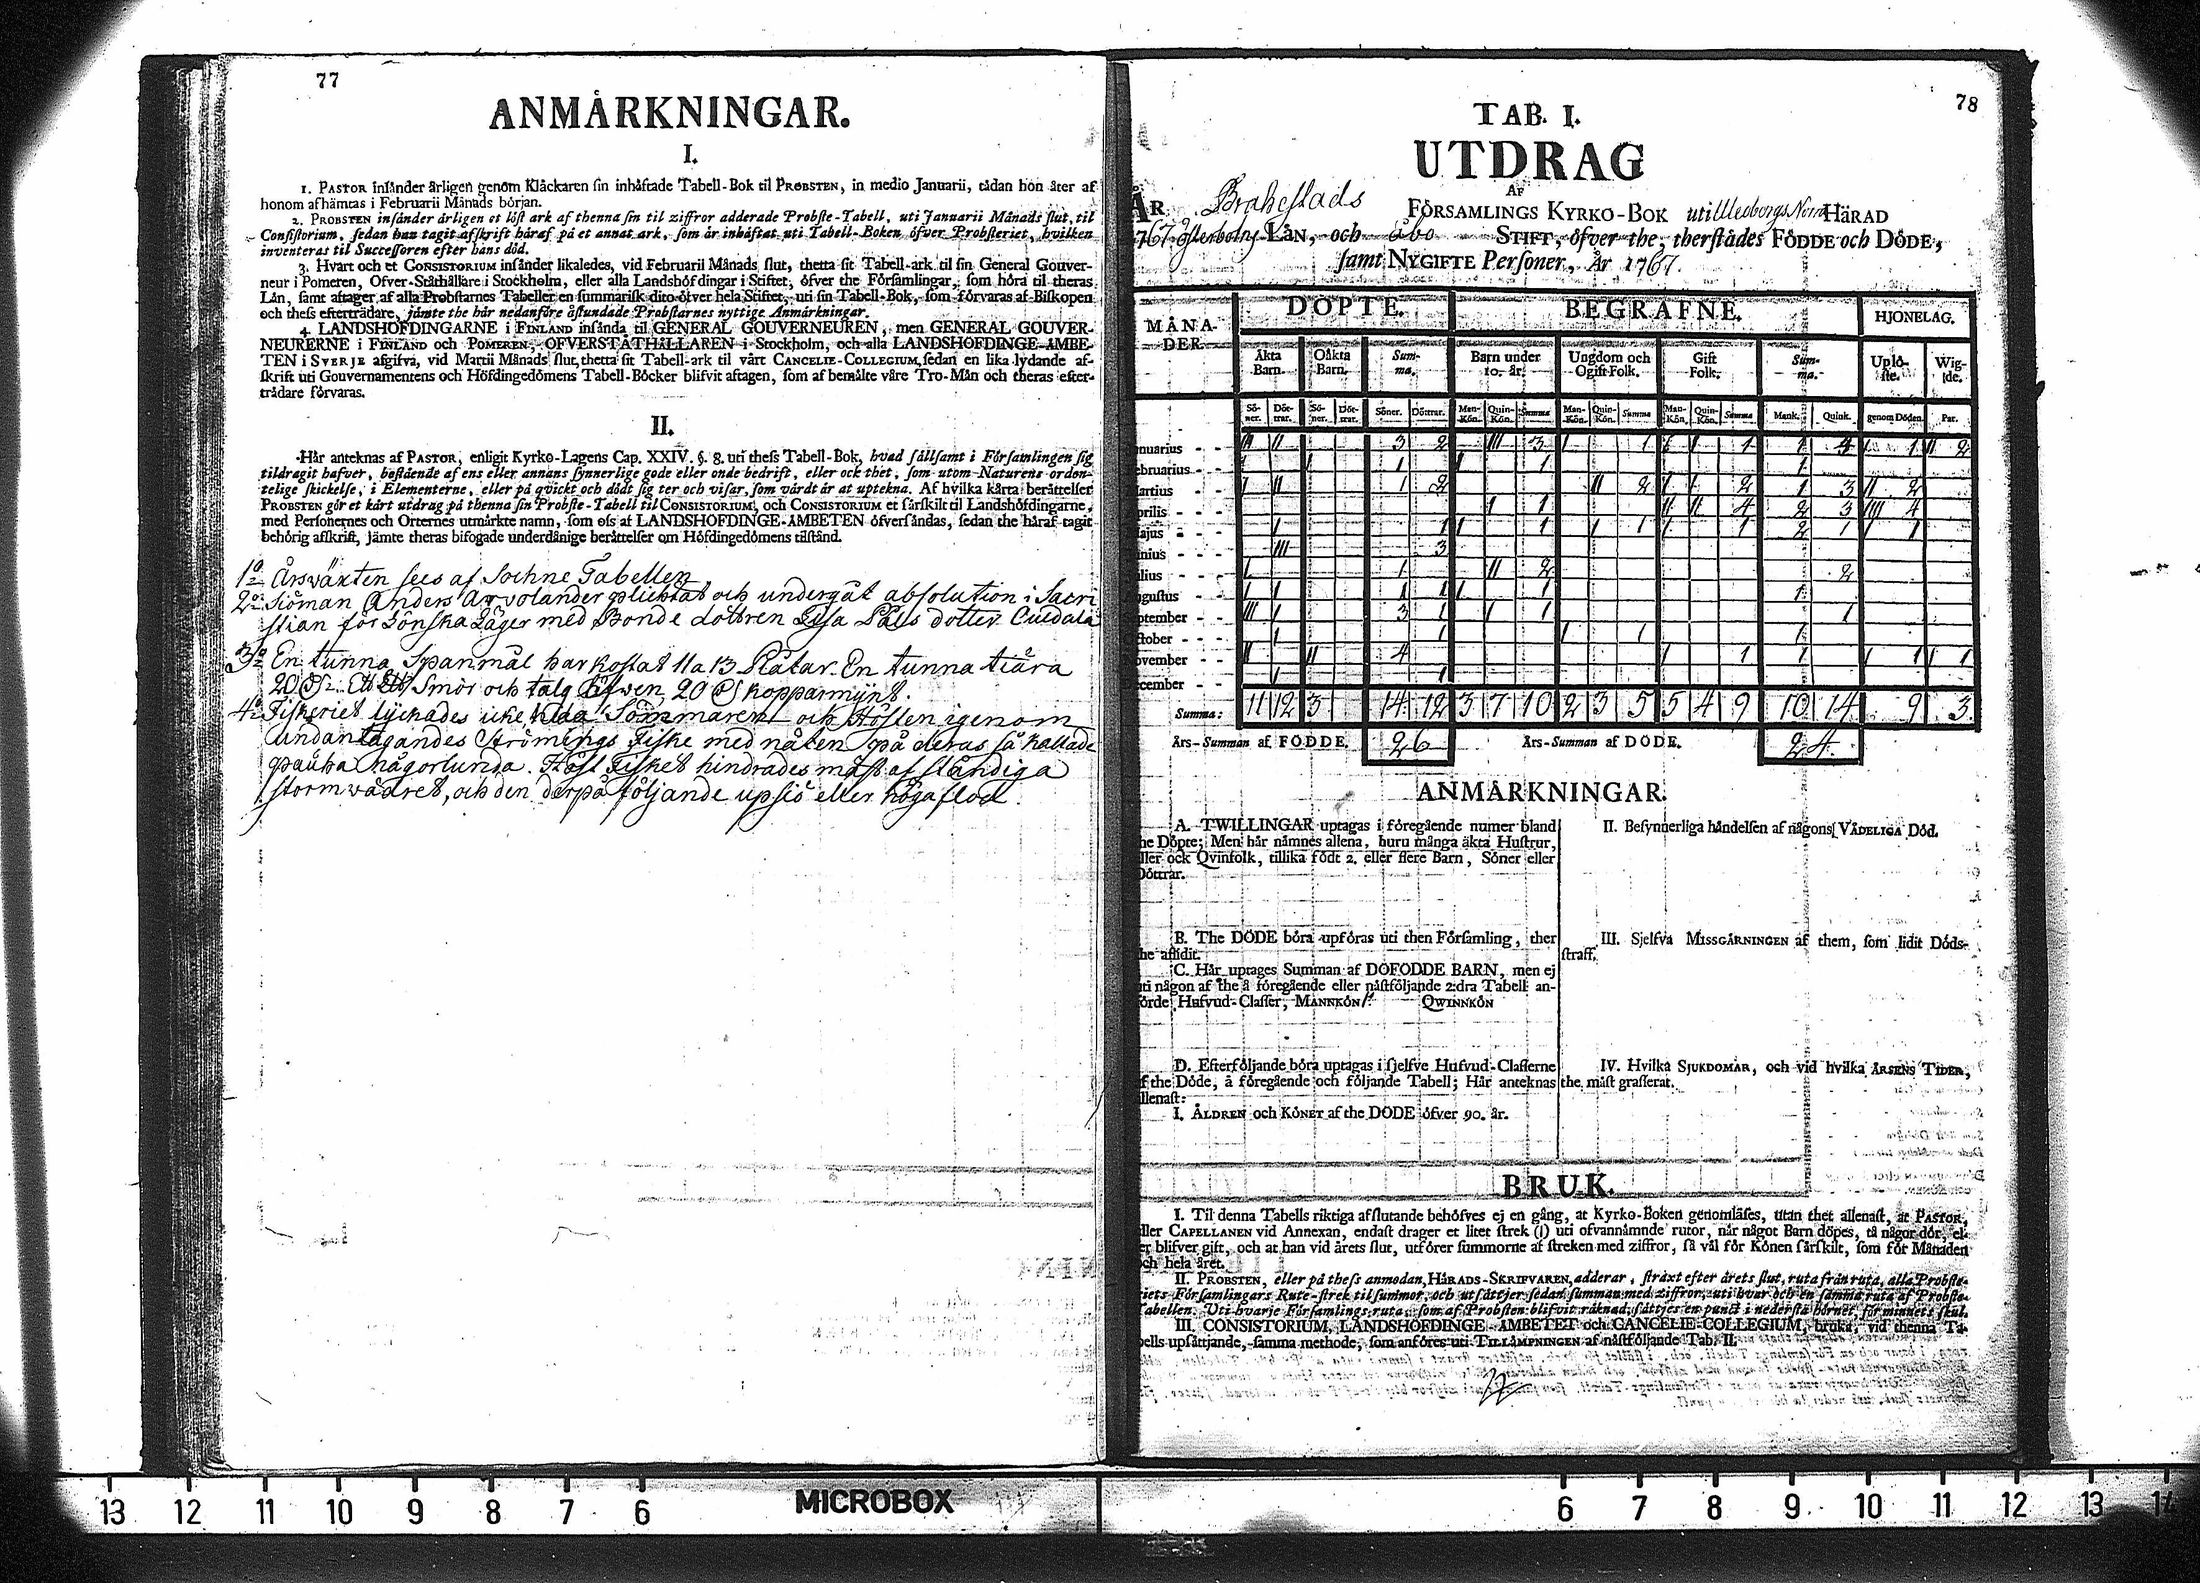 77
ANMÅRKNINGAR.
I.
1. PASTOR insånder årligen genom Klåckaren sin inhåftade Tabell-Bok til PROBSTEN, in medio Januarii, tådan hon åter af
honom afhåmtas i Februarii Månads början.
2. PROBSTEN insånder årligen et löst ark af thenna sin til ziffror adderade Probste-Tabell, uti Januarii Månads slut, til
Consistorium, sedan han tagit afskrift håraf på et annat ark, som år inhåftat uti Tabell-Boken öfver Probsteriet, hvilken
inventeras til Successoren efter hans död.
3. Hvart och et CONSISTORIUM insånder likaledes, vid Februarii Månads slut, thetta sit Tabell-ark til sin General Gouver-
neur i Pomeren, Öfver-Ståthållare i Stockholm, eller alla Landshöfdingar i Stiftet, öfver the Församlingar, som höra til theras
Lån, samt aftager af alla Probstarnes Tabeller en summarisk dito öfver hela Stiftet, uti sin Tabell-Bok, som förvaras af Biskopen
och thess efterträdare, jåmte the hår nedanföre åstundade Probstarnes nyttige Anmårkningar.
4. LANDSHÖFDINGARNE i FINLAND insånda til GENERAL GOUVERNEUREN, men GENERAL GOUVER-
NEURERNE i FINLAND och POMEREN, ÖFVERSTÅTHÅLLAREN i Stockholm, och alla LANDSHÖFDINGE-ÅMBE-
TEN i SVERJE afgifva, vid Martii Månads slut, thetta sit Tabell-ark til vårt CANCELIE-COLLEGIUM, sedan en lika lydande af-
skrift uti Gouvernamentens och Höfdingedömens Tabell-Böcker blifvit aftagen, som af bemålte våre Tro-Mån och theras efter-
trådare förvaras.
II.
Hår anteknas af PASTOR, enligit Kyrko-Lagens Cap. XXIV. §. 8. uti thess Tabell-Bok, hvad sållsamt i Församlingen sig
tildragit hafver, bestående af ens eller annans synnerlige gode eller onde bedrift, eller ock thet, som utom Naturens orden-
telige skickelse, i Elementerne, eller på qvickt och dödt sig ter och visar, som vårdt år at uptekna. Af hvilka kårta beråttelser
PROBSTEN gör et kårt utdrag på thenna sin Probste-Tabell til CONSISTORIUM, och CONSISTORIUM et sårskilt til Landshöfdingarne,
med Personernes och Orternes utmårkte namn, som oss af LANDSHÖFDINGE-ÅMBETEN öfversåndas, sedan the håraf tagit
behörig afskrift, jåmte theras bifogade underdånige beråttelser om Höfdingedömens tilstånd.
1o Årswäxten sees af Sochne Tabellen
2o Siöman Anders Arvolander plichtat och undergåt absolution i Sacri
stian för Lönska Läger med Bonde dottren Lisa Påls dotter
3o En tunna Spanmål har kostat 11 a 13 Platar. En tunna tiära
20 Smör och talg 20 kopparmÿnt.
4o Fiskeriet lÿckades icke Sommaren och Hösten igenom
undantagandes Strömings Fiske med nåten på deras så kallade
någorlunda. Höst Fisket hindrades mäst af ständiga
stormwädret, och den derpå följande upsiö eller höga flod.
78
TAB. I.
UTDRAG
AF
ÅR Brahestads FÖRSAMLINGS KYRKO-BOK uti Uleoborgs Norra HÄRAD
1767 Österbotns LÅN, och Åbo STIFT, öfver the, therstådes FÖDDE och DÖDE,
samt NYGIFTE Personer, År 1767.
MÅNA-DER. DÖPTE. BEGRAFNE. HJONELAG.
Åkta Barn. Oåkta Barn. Sum-ma. Barn under 10. år. Ungdom och Ogift Folk. Gift Folk. Sum-ma. Uplö-ste. Wig-de.
Sö-ner. Döt-trar. Sö-ner. Döt-trar. Söner. Döttrar. Man-Kön. Quin-Kön. Summa Man-Kön. Quin-Kön. Summa Man-Kön. Quin-Kön. Summa Mank. Quink. genom Döden. Par.
nuarius - - III II 3 2 III 3 I 1 I 1 1 4 I 1 II 2
ebruarius - - I 1 I 1 1
artius - - I II 1 2 II 2 I I 2 1 3 II 2
prilis - - I 1 II II 4 2 3 IIII 4
ajus - - I 1 I 1 I 1 I 1 2 1 I 1
nius - - III 3
lius - - I 1 II 2 2
ugustus - - I I 1 1 I 1 1
ptember - - III I 3 1 I 1 1
ctober - - I 1 I 1 1
ovember - - II II 4 I 1 1 I 1 I 1
ecember - - I 1
Summa: 11 12 3 14 12 3 7 10 2 3 5 5 4 9 10 14 9 3
Års-Summan af FÖDDE. 26 Års-Summan af DÖDE. 24
ANMÅRKNINGAR.
A. TWILLINGAR uptagas i föregående numer bland
he Döpte; Men hår nåmnes allena, huru många åkta Hustrur,
ller ock Qvinfolk, tillika födt 2. eller flere Barn, Söner eller
Döttrar.
B. The DÖDE böra upföras uti then Församling, ther
he aflidit.
C. Hår uptages Summan af DÖFÖDDE BARN, men ej
uti någon af the å föregående eller nåstföljande 2:dra Tabell an-
förde Hufvud-Classer, MANNKÖN QWINNKÖN
D. Efterföljande böra uptagas i sjelfve Hufvud-Classerne
f the Döde, å föregående och följande Tabell; Hår anteknas
llenast:
I. ÅLDREN och KÖNET af the DÖDE öfver 90. år.
II. Besynnerliga håndelsen af någons VÅDELIGA Död.
III. Sjelfva MISSGÅRNINGEN af them, som lidit Döds-
straff.
IV. Hvilka SJUKDOMAR, och vid hvilka ÅRSENS TIDER,
the måst grasserat.
BRUK.
I. Til denna Tabells riktiga afslutande behöfves ej en gång, at Kyrko-Boken genomläses, utan thet allenast, at PASTOR,
ller CAPELLANEN vid Annexan, endast drager et litet strek (|) uti ofvannåmnde rutor, når något Barn döpes, tå någor dör, el-
er blifver gift, och at han vid årets slut, utförer summorne af streken med ziffror, så vål för Könen sårskilt, som för Månaden
ch hela året.
II. PROBSTEN, eller på thess anmodan, HÅRADS-SKRIFVAREN, adderar, stráxt efter årets slut, ruta från ruta, alla Probste-
riets Församlingars Rute-strek til summor, och utsåttjer sedan summan med ziffror, uti hvar och en samma ruta af Probste-
Tabellen. Uti hvarje Församlings ruta, som af Probsten blifvit råknad, såttjes en punct i nedersta hörnet, för minnets skul.
III. CONSISTORIUM, LANDSHÖFDINGE-ÅMBETET och CANCELIE-COLLEGIUM, bruka, vid thenna Ta-
bells upsåttjande, samma methode, som anföres uti TILLÅMPNINGEN af nåstföljande Tab. II.
13 12 11 10 9 8 7 6 MICROBOX 6 7 8 9 10 11 12 13 14